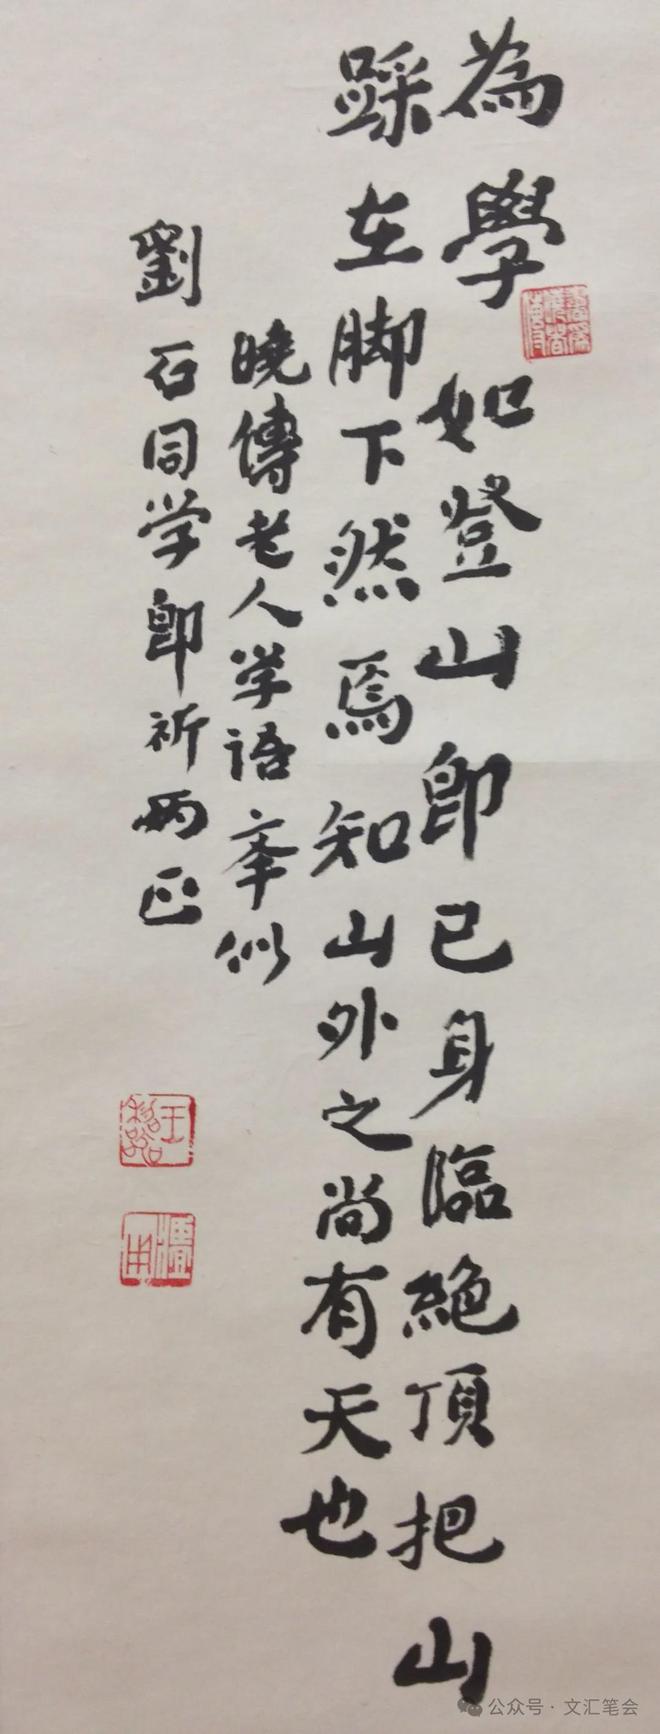 為學如登山即已身臨絕頂把山
踩在脚下然焉知山外之尚有天也
曉傳老人学語奉似
劉石同学即祈兩正
王利器
公众号·文汇笔会